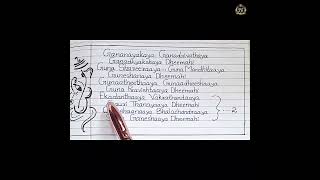 Gananayakaya Ganadaivathaya
Ganadhyakshaya Dheemahi
Guna Shareeraaya Guna Manditaaya
Guneshanaya Dheemahi
Gunaatheethaaya Gunaadheeshaaya
Guna Pravishtaaya Dheemahi
Ekadanthaaya Vakrathundaaya
Thanayaaya Dheemahi
Bhalachandraaya
Ganeshaaya Dheemahi
2